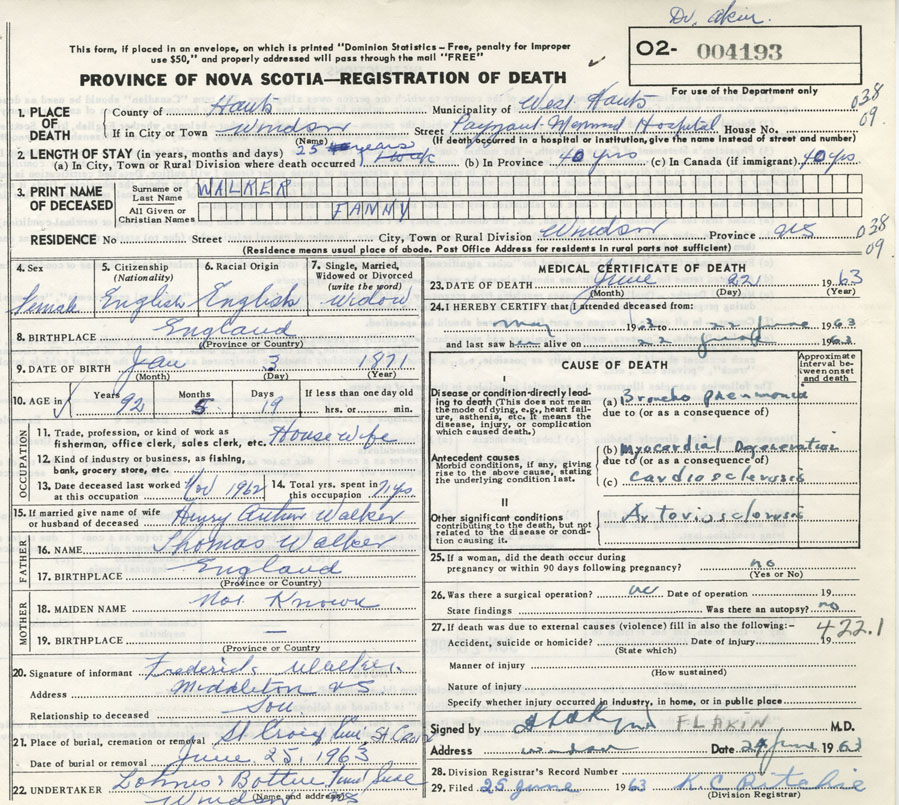 Dr. Akin.
This form, if placed in an envelope, on which is printed "Dominion Statistics – Free, penalty for Improper
use $50," and properly addressed will pass through the mail "FREE"
O2- 004193
PROVINCE OF NOVA SCOTIA—REGISTRATION OF DEATH
For use of the Department only
1. PLACE OF DEATH
County of Hants Municipality of West Hants 038
If in City or Town Windsor Street Payzant Memorial Hospital House No. 09
(Name) (If death occurred in a hospital or institution, give the name instead of street and number)
2. LENGTH OF STAY (in years, months and days) 25 years
(a) In City, Town or Rural Division where death occurred (b) In Province 40 yrs (c) In Canada (if immigrant) 40 yrs
3. PRINT NAME OF DECEASED
Surname or Last Name WALKER
All Given or Christian Names FANNY
RESIDENCE No Street City, Town or Rural Division Windsor Province NS 038
(Residence means usual place of abode. Post Office Address for residents in rural parts not sufficient) 09
4. Sex Female
5. Citizenship (Nationality) English
6. Racial Origin English
7. Single, Married, Widowed or Divorced (write the word) Widow
8. BIRTHPLACE England
(Province or Country)
9. DATE OF BIRTH Jan 3 1871
(Month) (Day) (Year)
10. AGE in Years 92 Months 5 Days 19 If less than one day old
hrs. or min.
OCCUPATION
11. Trade, profession, or kind of work as
fisherman, office clerk, sales clerk, etc. Housewife
12. Kind of industry or business, as fishing,
bank, grocery store, etc.
13. Date deceased last worked at this occupation Nov 1962 14. Total yrs. spent in this occupation
15. If married give name of wife
or husband of deceased Henry Arthur Walker
FATHER
16. NAME Thomas Walker
17. BIRTHPLACE England
(Province or Country)
MOTHER
18. MAIDEN NAME Not Known
19. BIRTHPLACE —
(Province or Country
20. Signature of informant Frederick Walker
Address Middleton NS
Relationship to deceased Son
21. Place of burial, cremation or removal St Croix
Date of burial or removal June 25, 1963
22. UNDERTAKER
Windsor NS
(Name and address)
MEDICAL CERTIFICATE OF DEATH
23. DATE OF DEATH June 22 1963
(Month) (Day) (Year)
24. I HEREBY CERTIFY that I attended deceased from:
May 1963 to 22 June 1963
and last saw her alive on 22 June 1963
CAUSE OF DEATH
Approximate interval between onset and death
I
Disease or condition directly leading
to death (This does not mean
the mode of dying, e.g., heart failure,
asthenia, etc. It means the
disease, injury, or complication
which caused death.)
(a) Broncho pneumonia
due to (or as a consequence of)
Antecedent causes
Morbid conditions, if any, giving
rise to the above cause, stating
the underlying condition last.
(b) Myocardial Degeneration
due to (or as a consequence of)
(c) Cardiosclerosis
II
Other significant conditions
contributing to the death, but not
related to the disease or condition
causing it.
Arteriosclerosis
25. If a woman, did the death occur during
pregnancy or within 90 days following pregnancy? no
(Yes or No)
26. Was there a surgical operation? no Date of operation 19
State findings Was there an autopsy? no
27. If death was due to external causes (violence) fill in also the following:– 422.1
Accident, suicide or homicide? Date of injury 19
(State which)
Manner of injury
(How sustained)
Nature of injury
Specify whether injury occurred in industry, in home, or in public place
Signed by F L AKIN M.D.
Address Windsor Date 24 June 1963
28. Division Registrar's Record Number
29. Filed 25 June 1963 K C Ritchie
(Division Registrar)